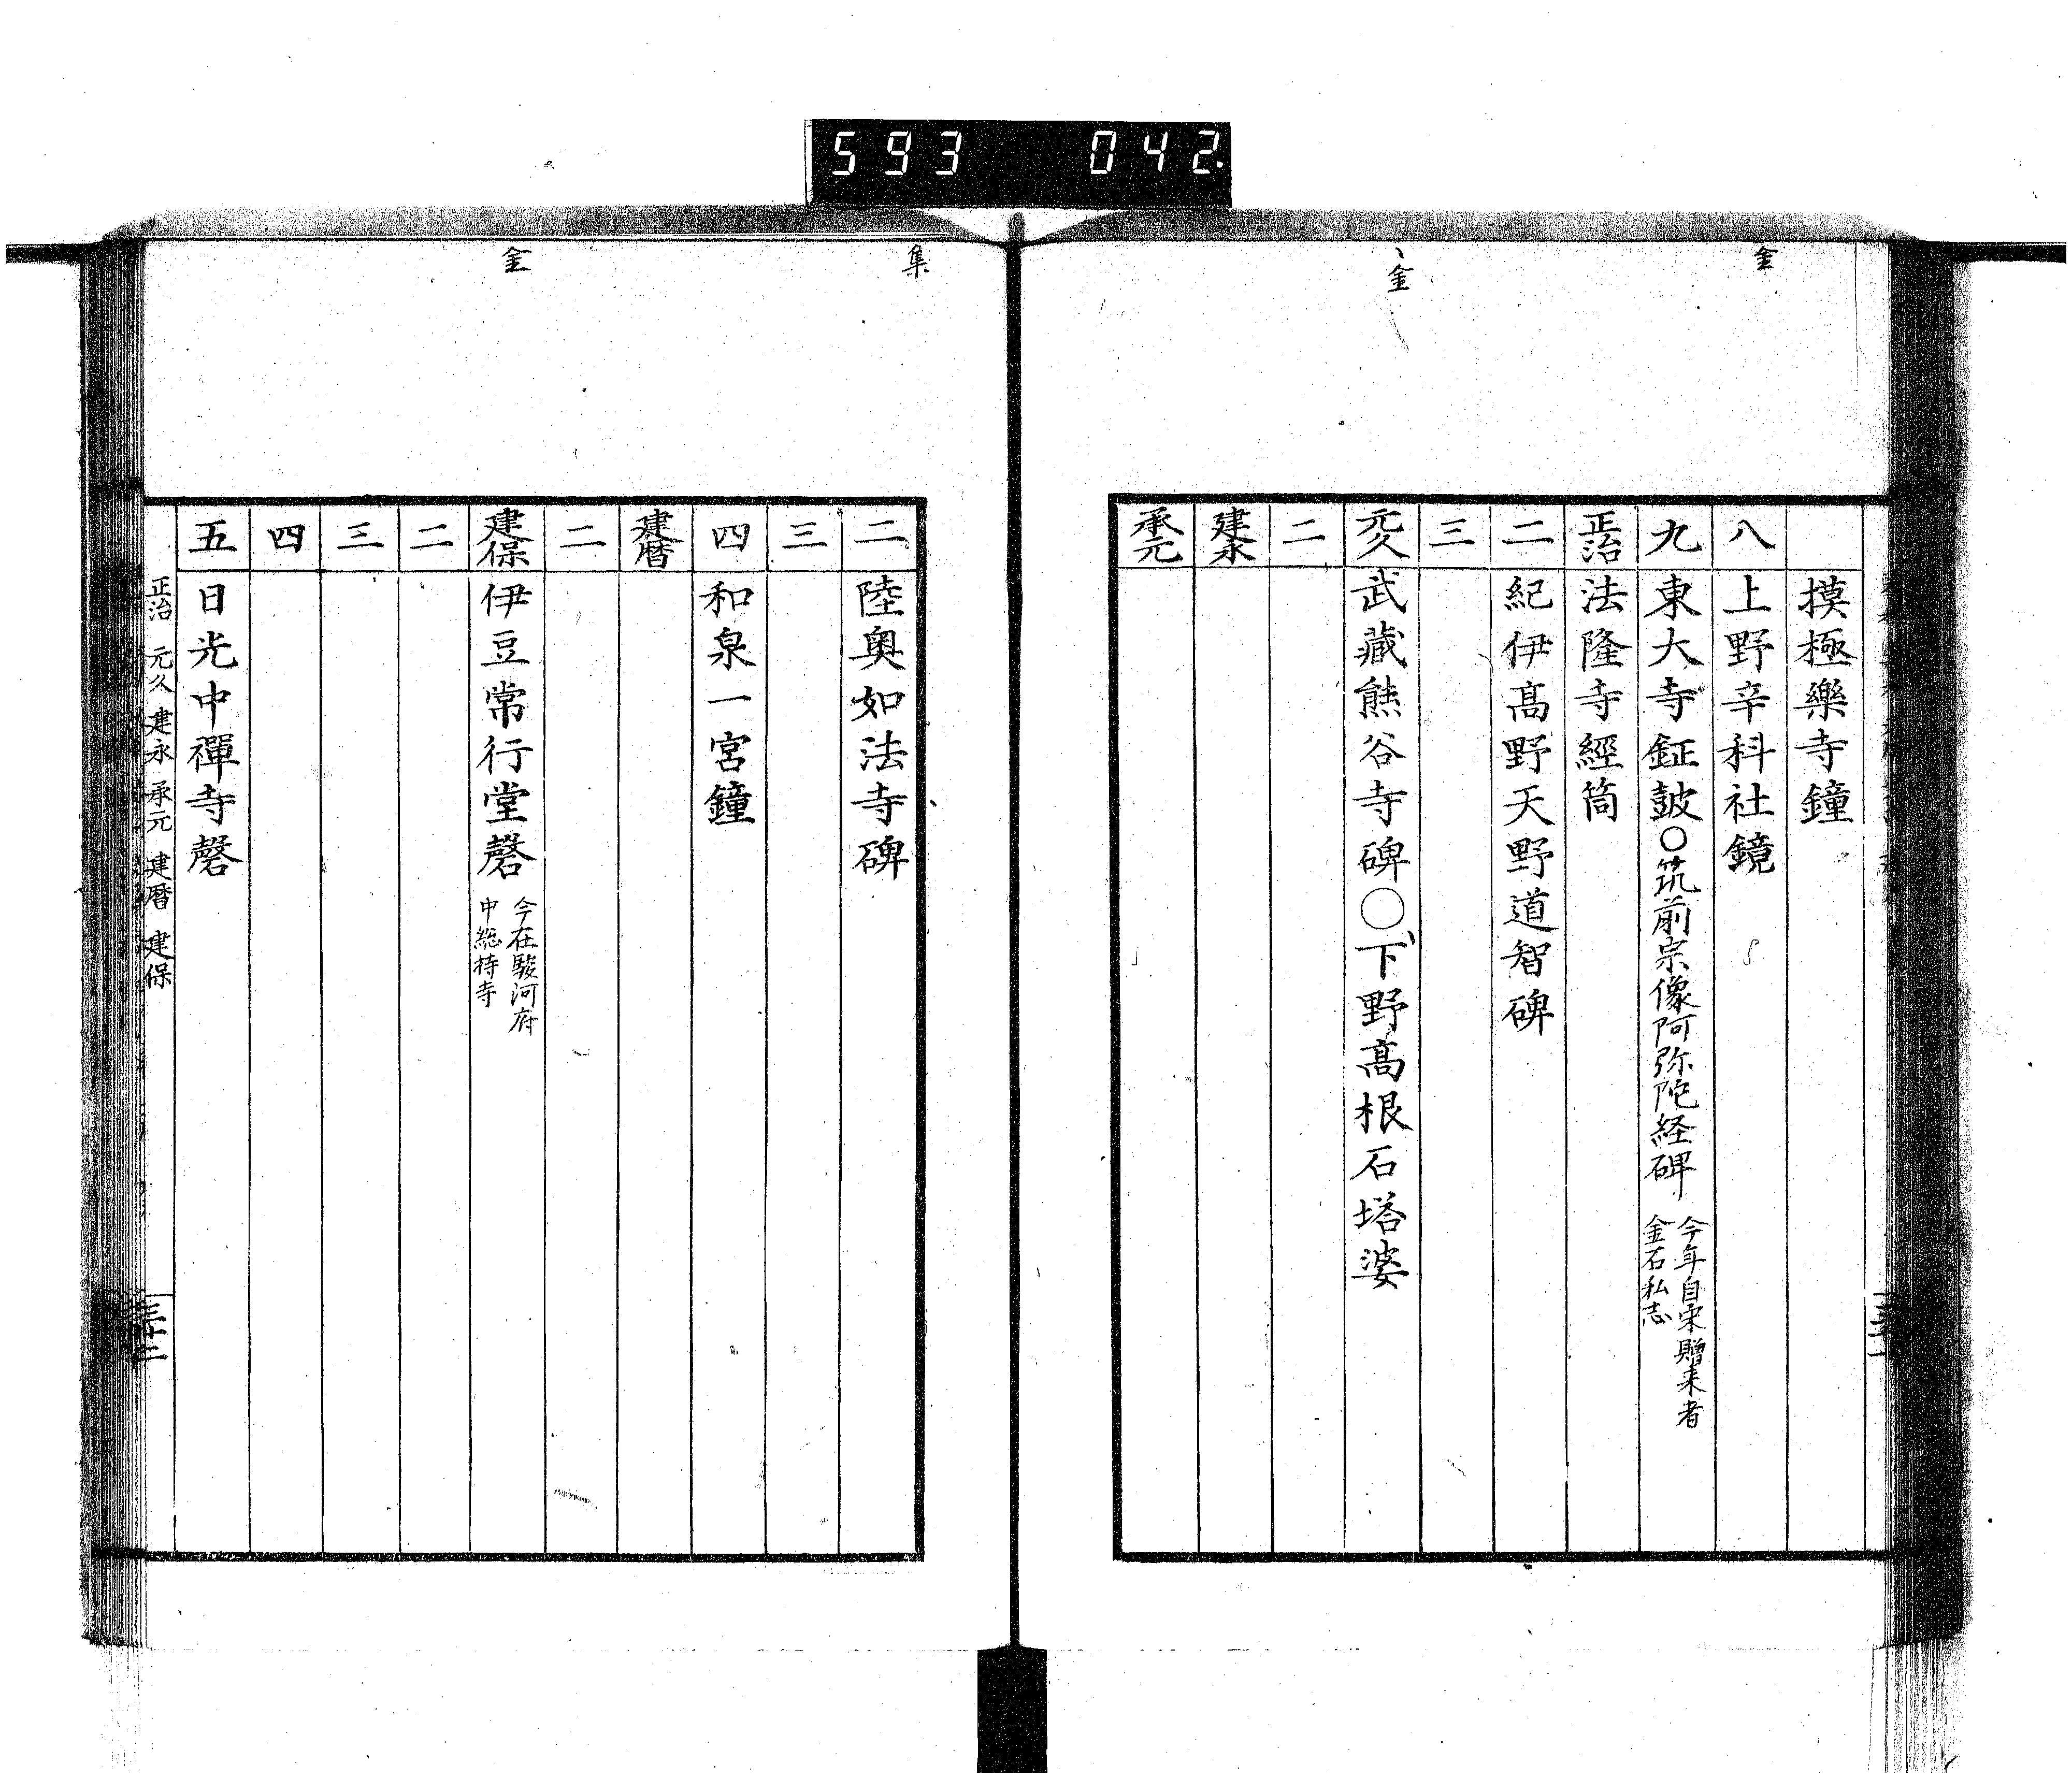 593 042
金
、金
摸極樂寺鐘
八 上野辛科社鏡
九 東大寺鉦皷〇筑前宗像阿弥陀経碑 今年自宋贈来者
金石私志
正治 法隆寺經筒
二 紀伊髙野天野道智碑
三
元久 武藏熊谷寺碑〇下野髙根石塔婆
二
建永
承元
集
金
二 陸奥如法寺碑
三
四 和泉一宮鐘
建暦
二
建保 伊豆常行堂磬 今在駿河府
中総持寺
二
三
四
五 日光中禪寺磬
正治 元久 建永 承元 建暦 建保
三十二